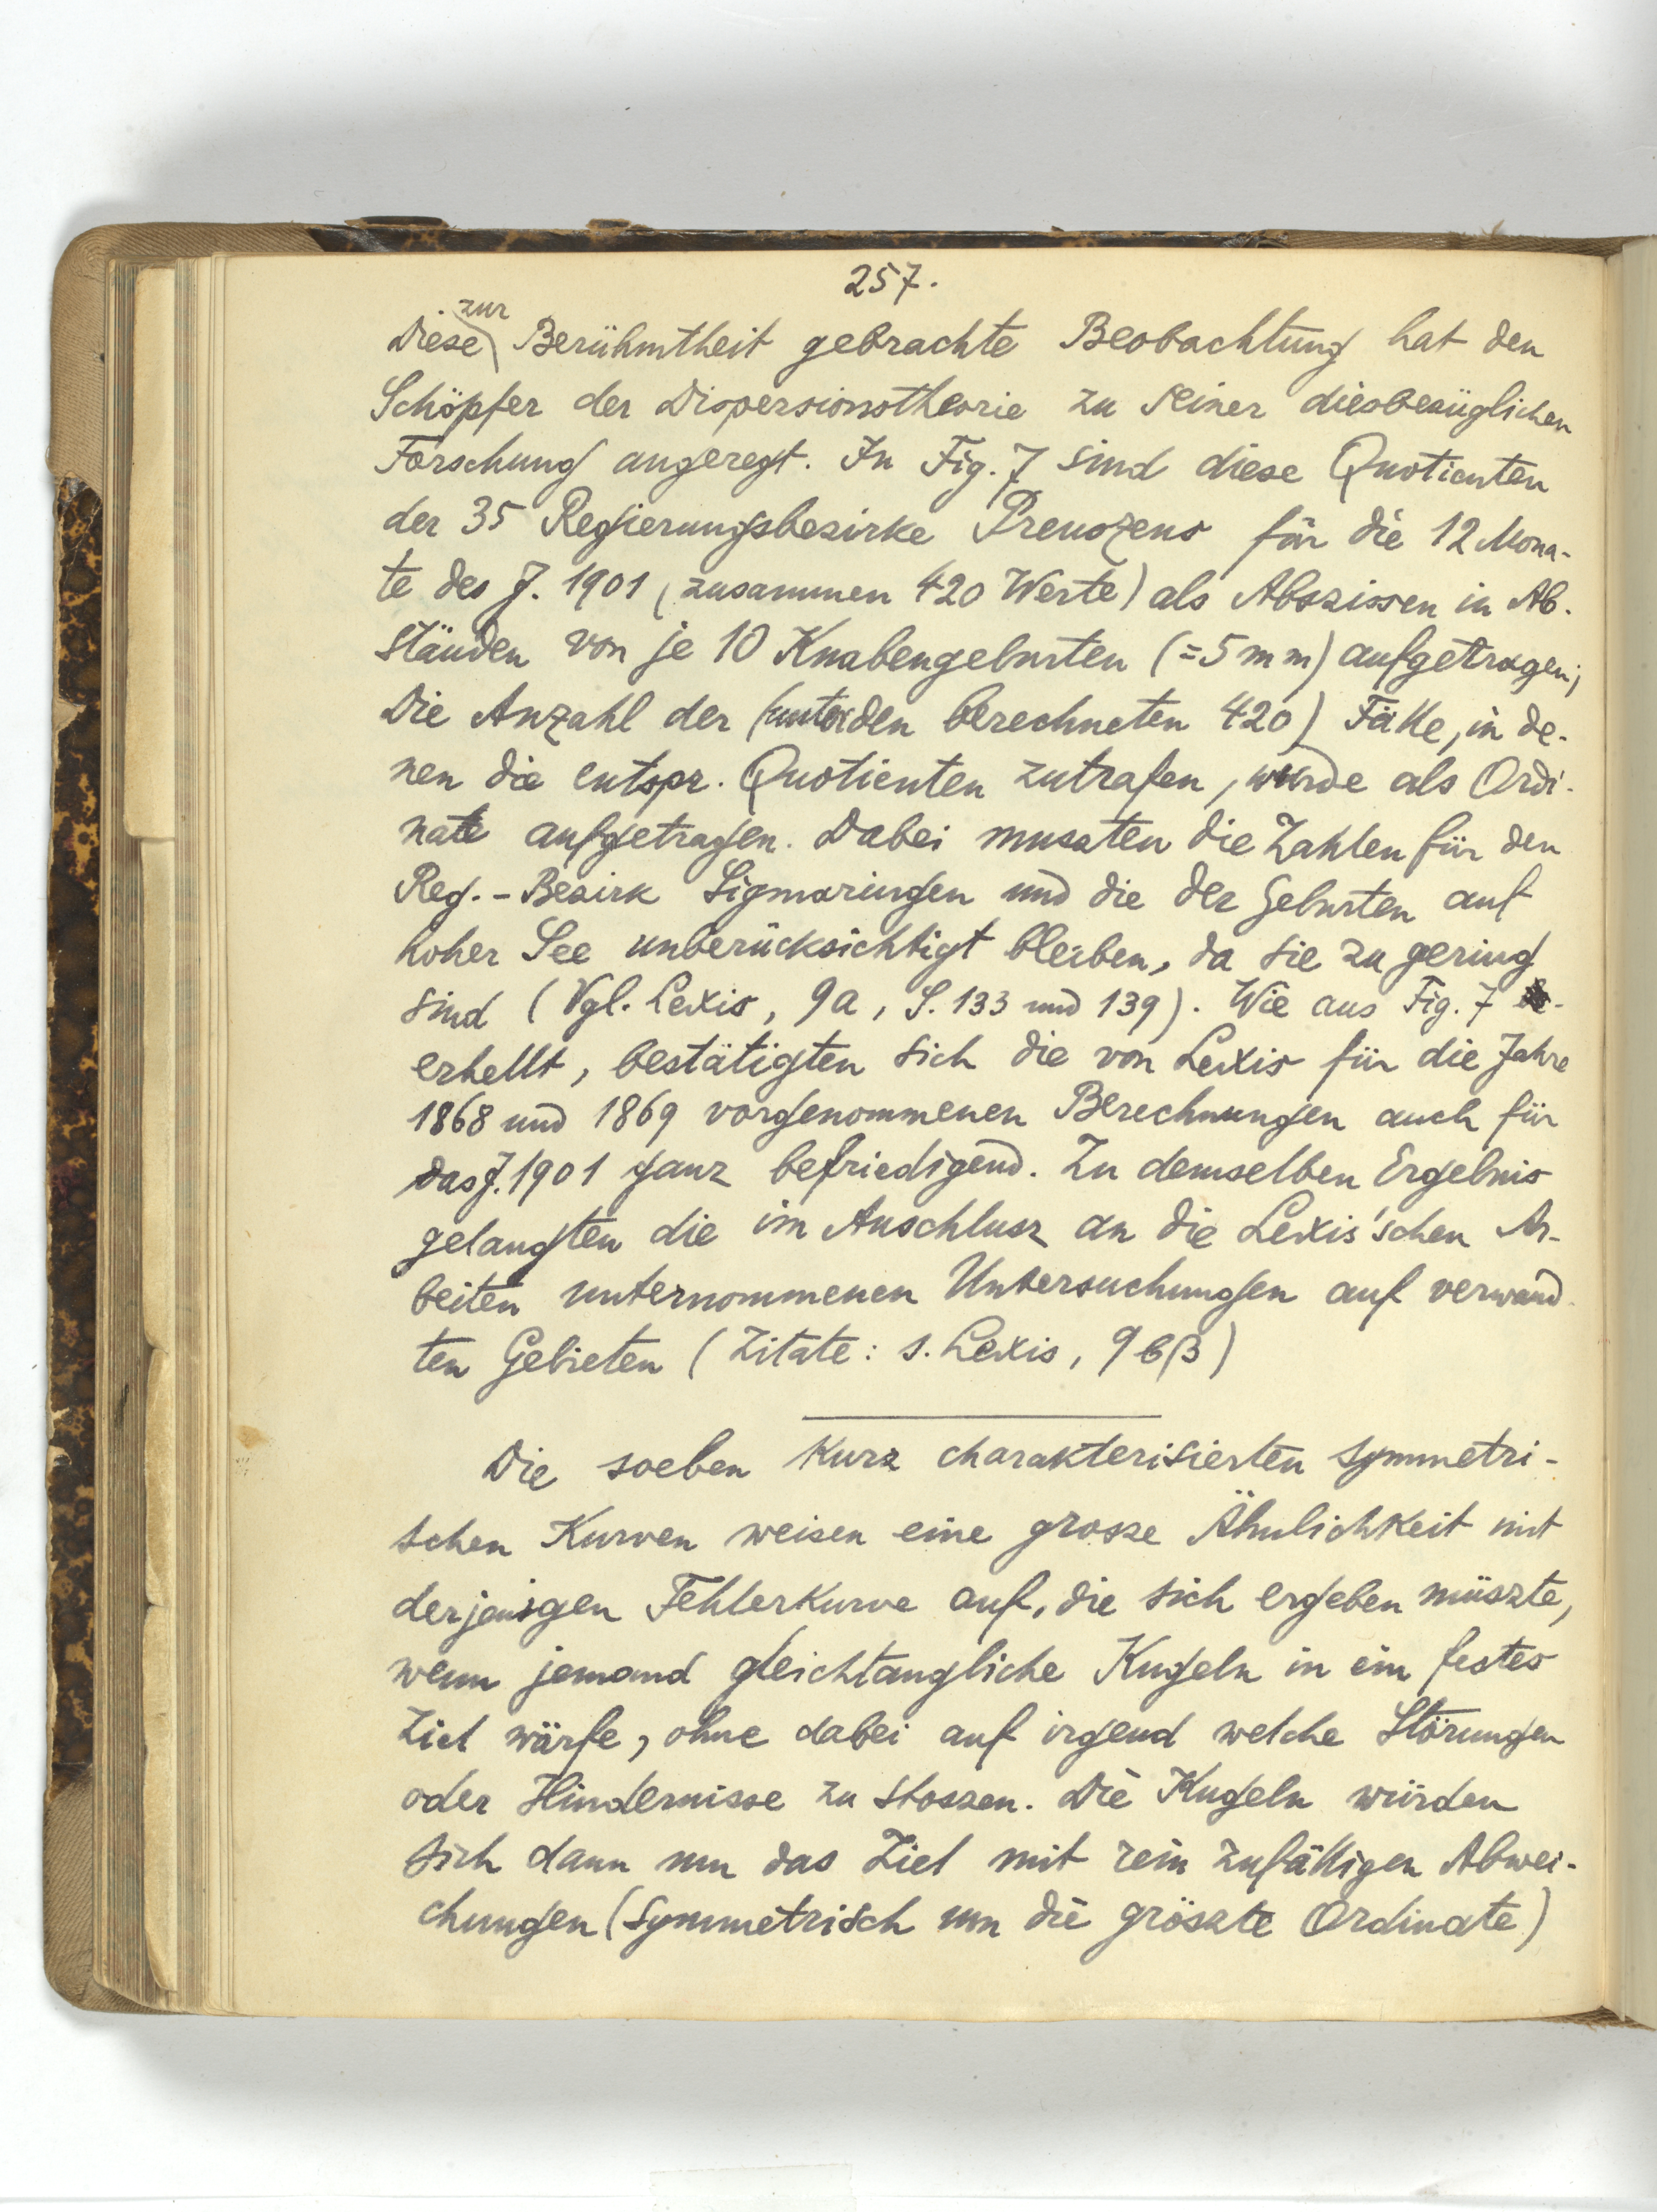 257.
Diese zur Berühmtheit gebrachte Beobachtung hat den
Schöpfer der Dispersionstheorie zu seiner diesbezüglichen
Forschung angeregt. In Fig. 7 sind diese Quotienten
der 35 Regierungsbezirke Preuszens für die 12 Mona-
te des J. 1901 (zusammen 420 Werte) als Abszissen in Ab-
ständen von je 10 Knabengeburten (=5 mm) aufgetragen;
Die Anzahl der (unter den berechneten 420) Fälle, in de-
nen die entspr. Quotienten zutrafen, wurde als Ordi-
nate aufgetragen. Dabei muszten die Zahlen für den
Reg.-Bezirk Sigmaringen und die der Geburten auf
hoher See unberücksichtigt bleiben, da sie zu gering
sind (Vgl. Lexis, 9a, S. 133 und 139). Wie aus Fig. 7
erhellt, bestätigten sich die von Lexis für die Jahre
1868 und 1869 vorgenommenen Berechnungen auch für
das J. 1901 ganz befriedigend. Zu demselben Ergebnis
gelangten die im Anschlusz an die Lexis'schen Ar-
beiten unternommenen Untersuchungen auf verwand-
ten Gebieten (Zitate: s. Lexis, 9bβ)
Die soeben kurz charakterisierten symmetri-
schen Kurven weisen eine grosze Ähnlichkeit mit
derjenigen Fehlerkurve auf, die sich ergeben müszte,
wenn jemand gleichtaugliche Kugeln in ein festes
Ziel wärfe, ohne dabei auf irgend welche Störungen
oder Hindernisse zu stoszen. Die Kugeln würden
sich dann um das Ziel mit rein zufälligen Abwei-
chungen (symmetrisch um die gröszte Ordinate)